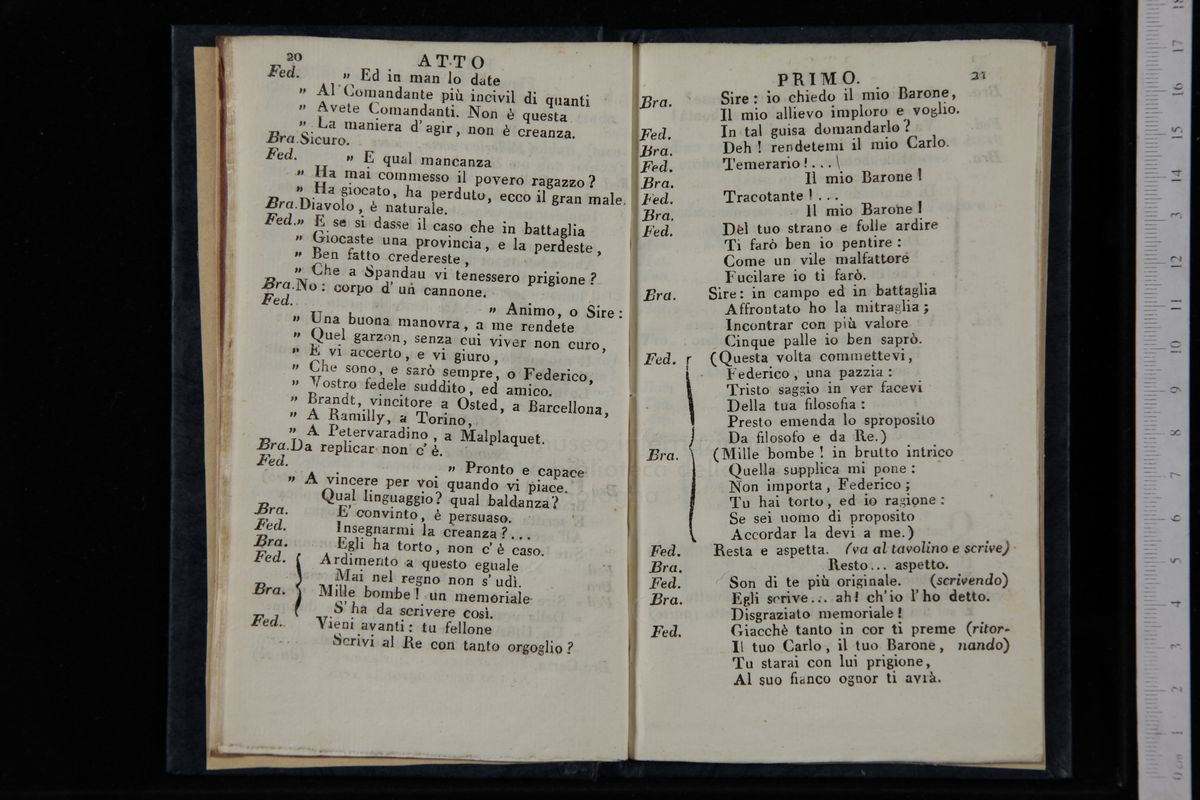 20
ATTO
Fed. „ Ed in man lo date
„ Al Comandante più incivil di quanti
„ Avete Comandanti. Non è questa
„ La maniera d'agir, non è creanza.
Bra. Sicuro.
Fed. „ E qual mancanza
„ Ha mai commesso il povero ragazzo?
„ Ha giocato, ha perduto, ecco il gran male.
Bra. Diavolo, è naturale.
Fed. „ E se si dasse il caso che in battaglia
„ Giocaste una provincia, e la perdeste,
„ Ben fatto credereste,
„ Che a Spandau vi tenessero prigione?
Bra. No: corpo d'un cannone.
Fed. „ Animo, o Sire:
„ Una buona manovra, a me rendete
„ Quel garzon, senza cui viver non curo,
„ E vi accerto, e vi giuro,
„ Che sono, e sarò sempre, o Federico,
„ Vostro fedele suddito, ed amico.
„ Brandt, vincitore a Osted, a Barcellona,
„ A Ramilly, a Torino,
„ A Petervaradino, a Malplaquet.
Bra. Da replicar non c'è.
Fed. „ Pronto e capace
„ A vincere per voi quando vi piace.
Qual linguaggio? qual baldanza?
Bra. E' convinto, è persuaso.
Fed. Insegnarmi la creanza?...
Bra. Egli ha torto, non c'è caso.
Fed. Ardimento a questo eguale
Mai nel regno non s'udì.
Bra. Mille bombe! un memoriale
S'ha da scrivere così.
Fed. Vieni avanti: tu fellone
Scrivi al Re con tanto orgoglio?
PRIMO.
21
Bra. Sire: io chiedo il mio Barone,
Il mio allievo imploro e voglio.
Fed. In tal guisa domandarlo?
Bra. Deh! rendetemi il mio Carlo.
Fed. Temerario!...
Bra. Il mio Barone!
Fed. Tracotante!...
Bra. Il mio Barone!
Fed. Del tuo strano e folle ardire
Ti farò ben io pentire:
Come un vile malfattore
Fucilare io ti farò.
Bra. Sire: in campo ed in battaglia
Affrontato ho la mitraglia;
Incontrar con più valore
Cinque palle io ben saprò.
Fed. (Questa volta commettevi,
Federico, una pazzia:
Tristo saggio in ver facevi
Della tua filosofia:
Presto emenda lo sproposito
Da filosofo e da Re.)
Bra. (Mille bombe! in brutto intrico
Quella supplica mi pone:
Non importa, Federico;
Tu hai torto, ed io ragione:
Se sei uomo di proposito
Accordar la devi a me.)
Fed. Resta e aspetta. (va al tavolino e scrive)
Bra. Resto... aspetto.
Fed. Son di te più originale. (scrivendo)
Bra. Egli scrive... ah! ch'io l'ho detto.
Disgraziato memoriale!
Fed. Giacchè tanto in cor ti preme (ritor-
Il tuo Carlo, il tuo Barone, nando)
Tu starai con lui prigione,
Al suo fianco ognor ti avrà.